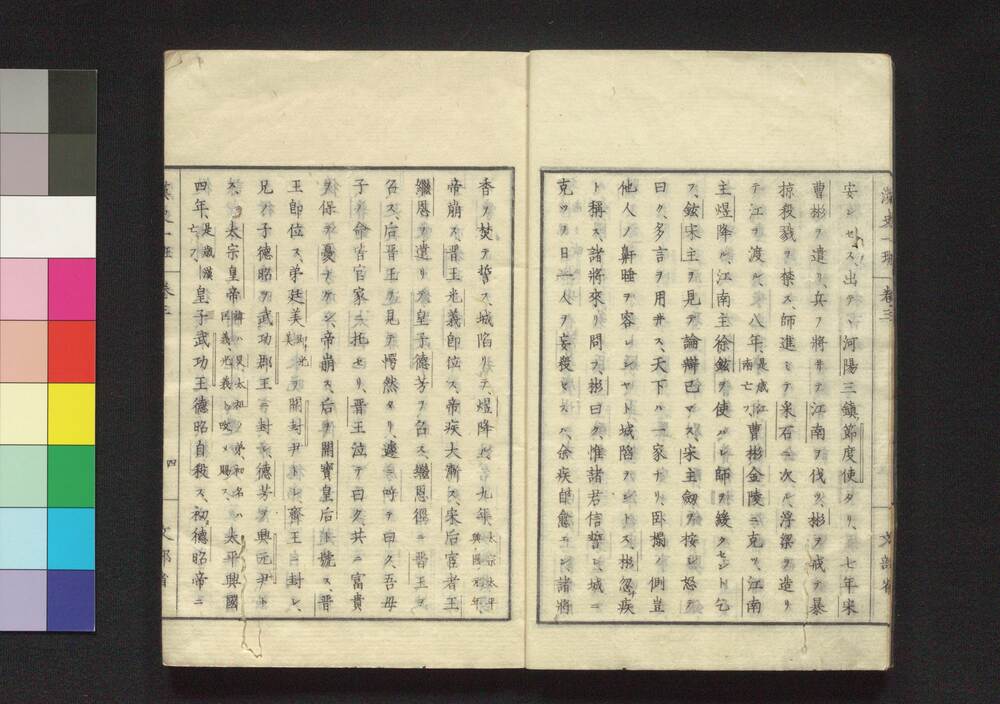 安シセス、出テヽ河陽三鎮節度使タリ、七年宋
曹彬ヲ遣リ、兵ヲ將井テ江南ヲ伐ツ、彬ヲ戒テ暴
掠殺戮ヲ禁ス、師進ミテ采石ニ次ル、浮梁ヲ造リ
テ江ヲ渡ル、八年是歳江南亡フ、曹彬金陵ニ克ツ、江南
主煜降ル、江南主徐鉉ヲ使ハシ師ヲ緩クセントヲ乞
フ、鉉宋主ヲ見テ論辯已マス、宋主劔ヲ按シ怒テ
曰ク、多言ヲ用井ス、天下ハ一家ナリ、臥榻ノ側豈
他人ノ鼻睡ヲ容レンヤト、城陷ラントス、彬忽疾
ト稱ス、諸將來リ問フ、彬曰ク、惟諸君信誓シ、城ニ
克ツノ日一人ヲ妄殺セスハ、余疾即愈エント、諸將
香ヲ焚テ誓ス、城陷リテ、煜降ル、九年、太宗太平興國元年
帝崩ス、晋王光義即位ス、帝疾大漸ス、宋后宦者王
繼恩ヲ遣リテ皇子德芳ヲ召ス、繼恩徑ニ晋王ヲ
召ス、后晋王ヲ見テ愕然タリ、遽ニ呼テ曰ク、吾母
子ノ命皆官家ニ托セリ、晋王泣テ曰ク、共ニ富貴
ヲ保ヲ憂フナシ、帝崩ス、后ヲ開寶皇后ト號ス、晋
王即位ス、弟廷美即光美ヲ開封尹トシ、齊王ニ封シ、
兄ノ子德昭ヲ武功郡王ニ封シ、德芳ヲ興元尹ト
ス、
太宗皇帝諱ハ炅太祖ノ弟初名ハ匡義、光義ト改メ賜フ、太平興國
四年、是歳漢亡フ、皇子武功王德昭自殺ス、初德昭帝ニ
漢史一班 卷三 四 文部省